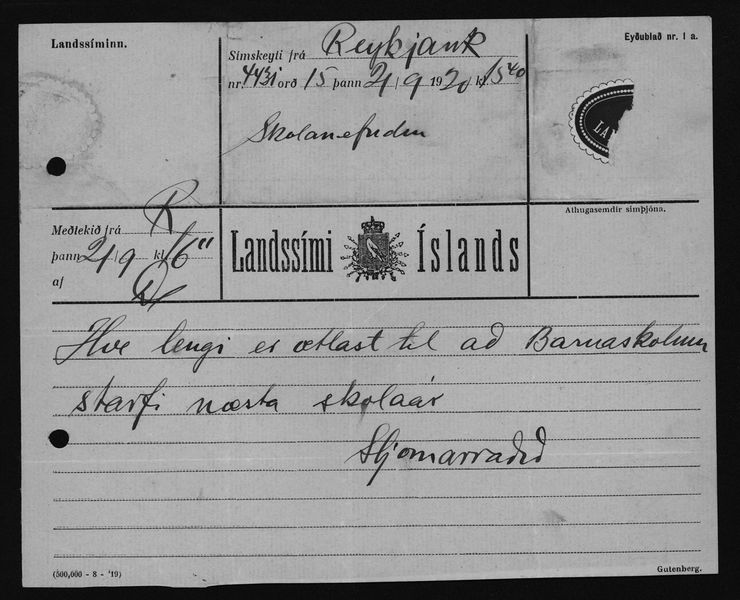 Landssíminn.
Eyðublað nr. 1 a.
Símskeyti frá Reykjavík
nr. 4431 orð 15 þann 21/9 1920 kl. 15 40
Skolanefnden
LA
Athugasemdir símþjóna.
Meðtekið frá R
þann 21/9 kl. 16
af
Landssími Íslands
Hve lengi er ætlast til að Barnaskolinn
starfi næsta skolaár
Stjornarradid
(500,000 - 8 - '19)
Gutenberg.